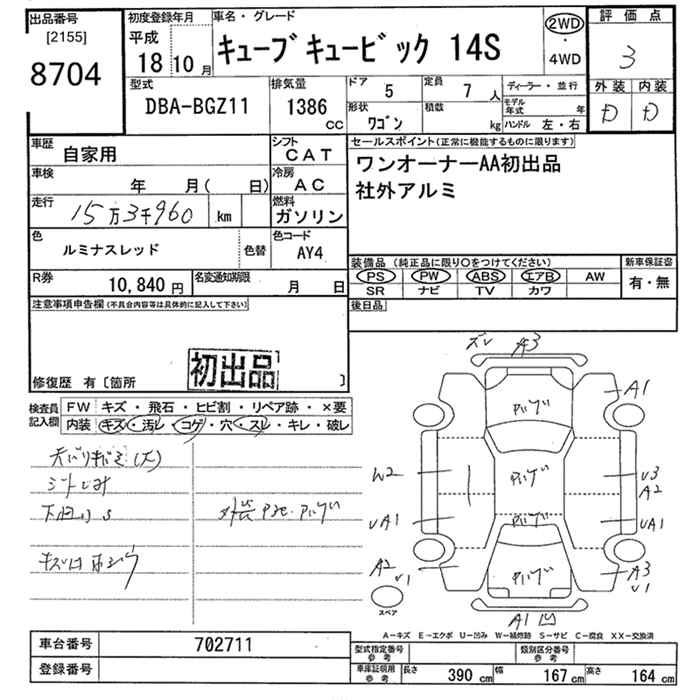 出品番号
[2155]
8704
初度登録年月
平成
18 10 月
車名・グレード
キューブキュービック 14S
2WD
・
4WD
評価点
3
外装 内装
D D
型式
DBA-BGZ11
排気量
1386
CC
ドア
5
定員
7 人
形状
ワゴン
積載
kg
ディーラー・並行
モデル年式 年
ハンドル 左・右
車歴
自家用
シフト
CAT
車検
年 月( 日)
冷房
AC
走行
15万3千960 km
燃料
ガソリン
色
ルミナスレッド
色替
色コード
AY4
R券
10,840 円
名変通知期限
月 日
セールスポイント(正常に機能するものに限ります)
ワンオーナーAA初出品
社外アルミ
装備品(純正品に限り○をつけてください)
PS PW ABS エアB AW
SR ナビ TV カワ
新車保証書
有・無
後日品
注意事項申告欄(不具合内容等は具体的に記入して下さい)
初出品
修復歴 有〔箇所 〕
検査員
記入欄
FW キズ・飛石・ヒビ割・リペア跡・×要
内装 キズ・汚レ・コゲ・穴・スレ・キレ・破レ
ズレ A3
A1
W2
U3
A2
UA1
UA1
A2
U1
A3
U1
A1 凹
スペア
A-キズ E-エクボ U-凹み W-補修跡 S-サビ C-腐食 XX-交換済
車台番号
702711
登録番号
型式指定番号
参考
類別区分番号
参考
車庫証明用
参考
長さ 390 cm
幅 167 cm
高さ 164 cm